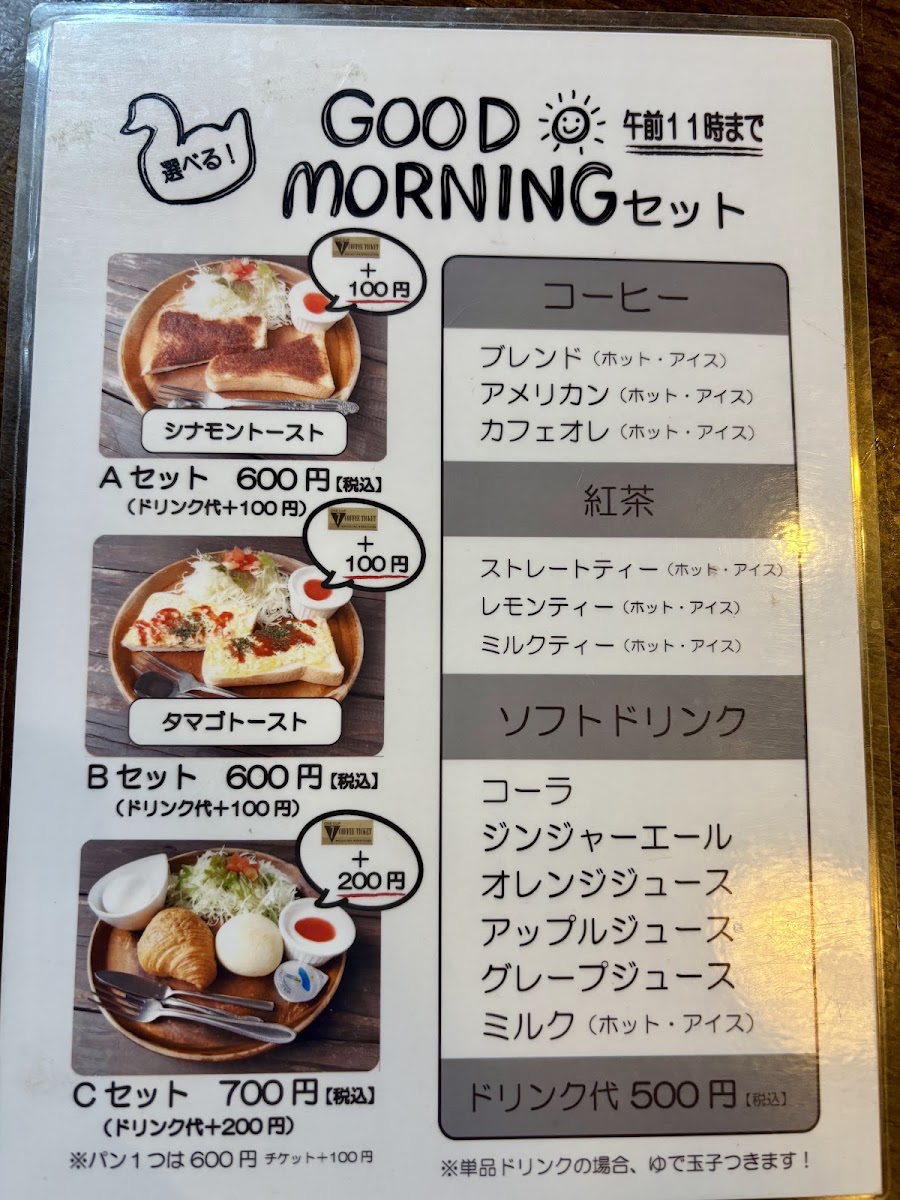 選べる！
GOOD
MORNINGセット
午前11時まで
COFFEE TICKET
＋
100円
シナモントースト
Aセット 600円【税込】
（ドリンク代＋100円）
COFFEE TICKET
＋
100円
タマゴトースト
Bセット 600円【税込】
（ドリンク代＋100円）
COFFEE TICKET
＋
200円
Cセット 700円【税込】
（ドリンク代＋200円）
※パン1つは600円 チケット＋100円
コーヒー
ブレンド（ホット・アイス）
アメリカン（ホット・アイス）
カフェオレ（ホット・アイス）
紅茶
ストレートティー（ホット・アイス）
レモンティー（ホット・アイス）
ミルクティー（ホット・アイス）
ソフトドリンク
コーラ
ジンジャーエール
オレンジジュース
アップルジュース
グレープジュース
ミルク（ホット・アイス）
ドリンク代 500円【税込】
※単品ドリンクの場合、ゆで玉子つきます！